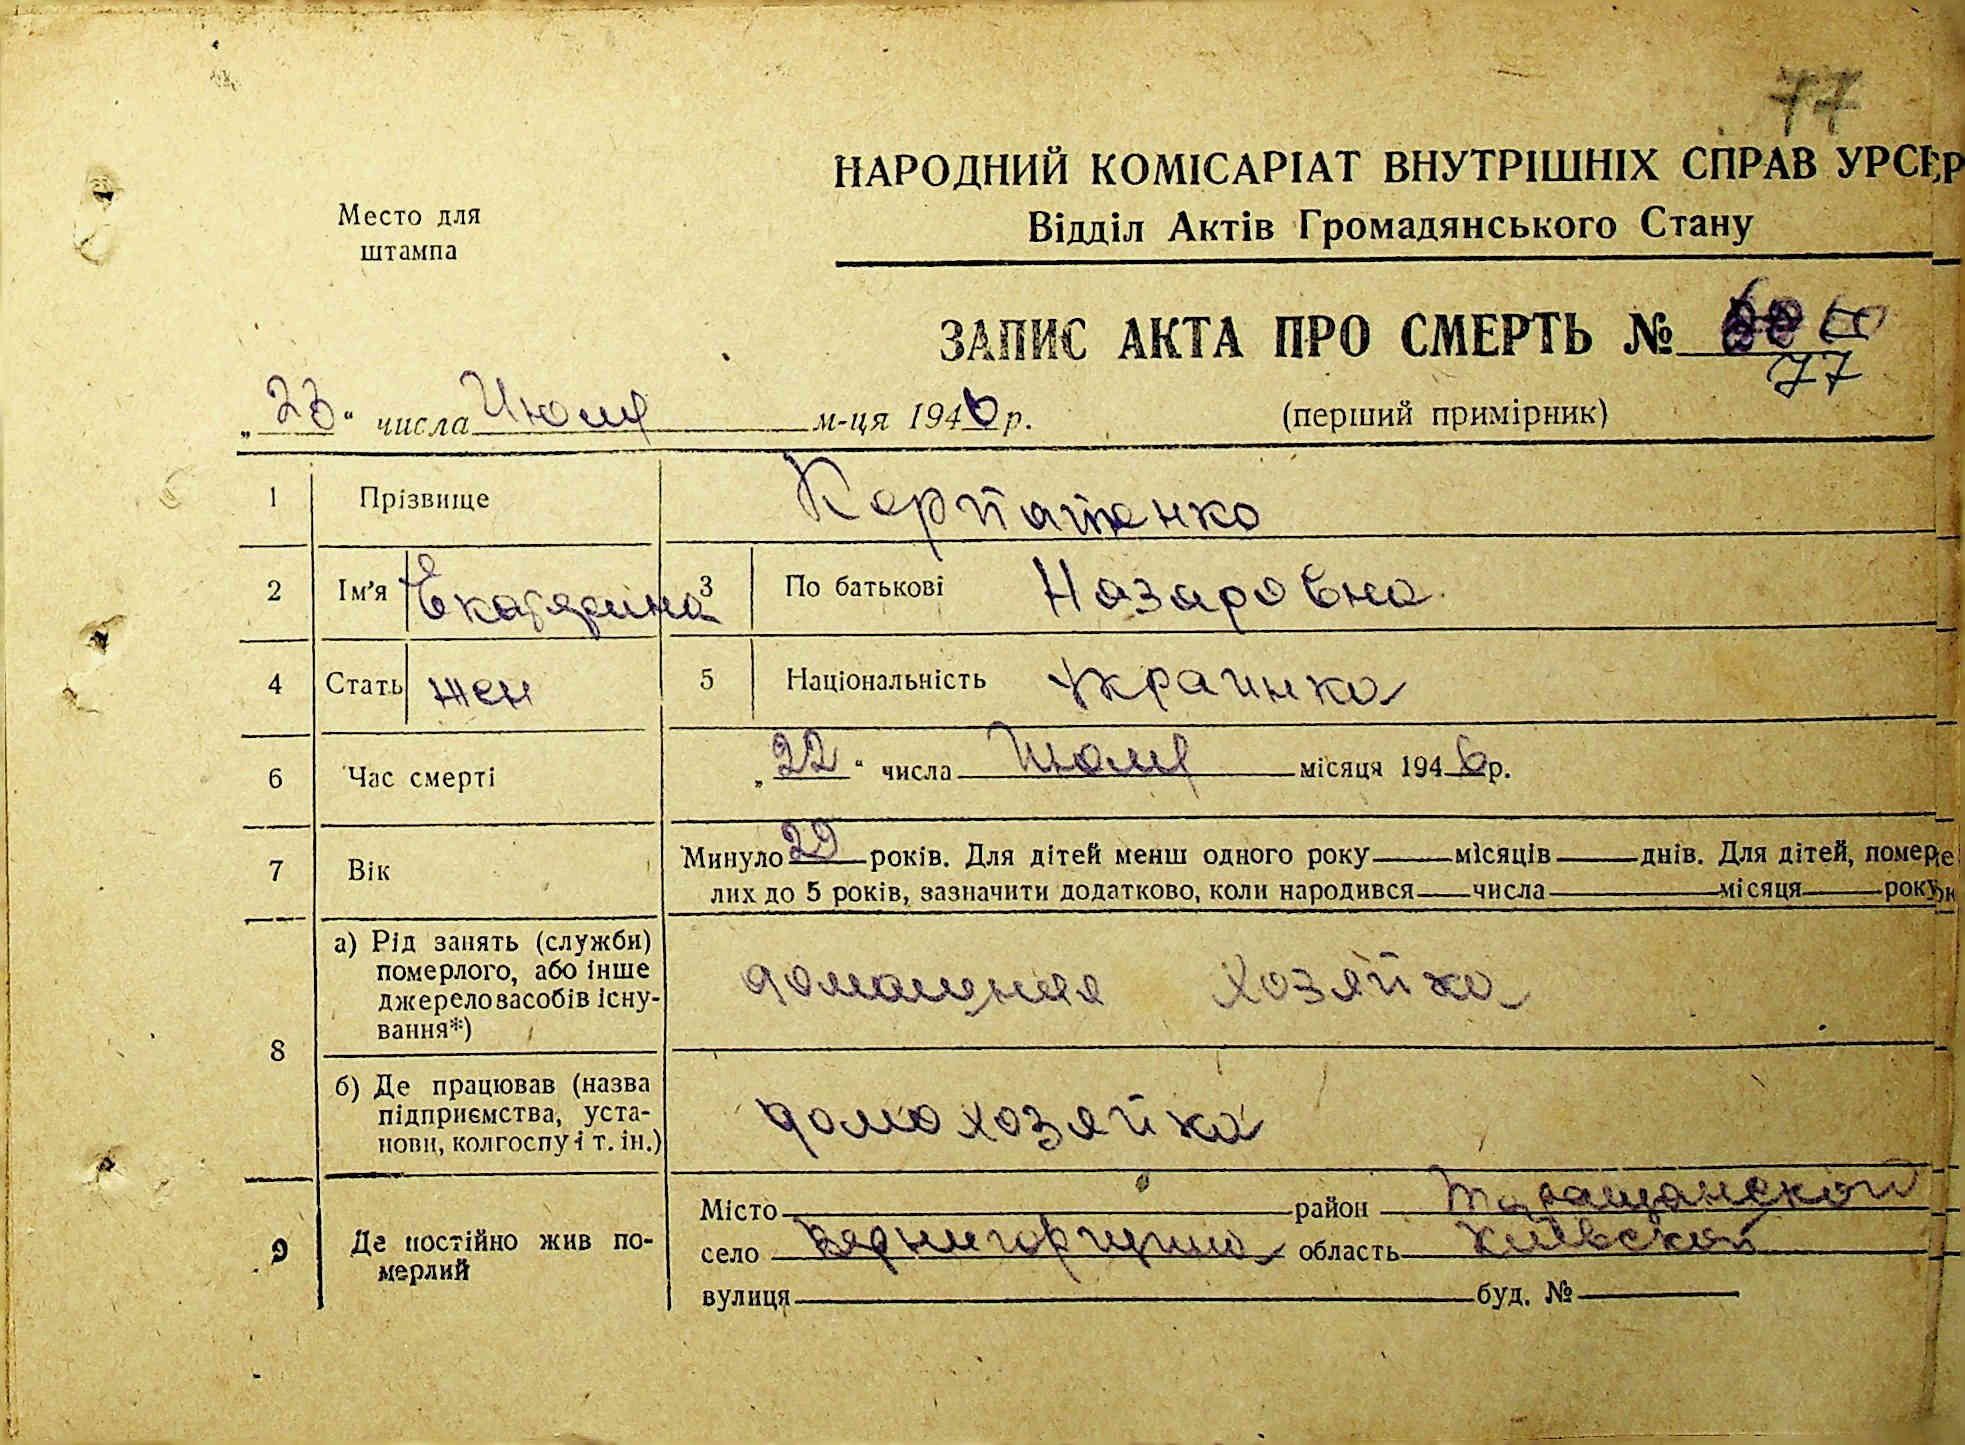 77
НАРОДНИЙ КОМІСАРІАТ ВНУТРІШНІХ СПРАВ УРСР
Место для
штампа
Відділ Актів Громадянського Стану
ЗАПИС АКТА ПРО СМЕРТЬ № 60
77
„23“ числа Июля м-ця 1946 р.
(перший примірник)
1 Прізвище Карпатенко
2 Ім'я Екатярина 3 По батькові Назаровна
4 Стать жен 5 Національність украинка
6 Час смерті „22“ числа Июля місяця 1946 р.
7 Вік Минуло 29 років. Для дітей менш одного року місяців днів. Для дітей, помер-
лих до 5 років, зазначити додатково, коли народився числа місяця року
8 а) Рід занять (служби)
померлого, або інше
джерело засобів існу-
вання*)
домашняя хозяйка
б) Де працював (назва
підприємства, уста-
нови, колгоспу і т. ін.)
домохозяйка
9 Де постійно жив по-
мерлий
Місто район Таращанской
село область Киевской
вулиця буд. №